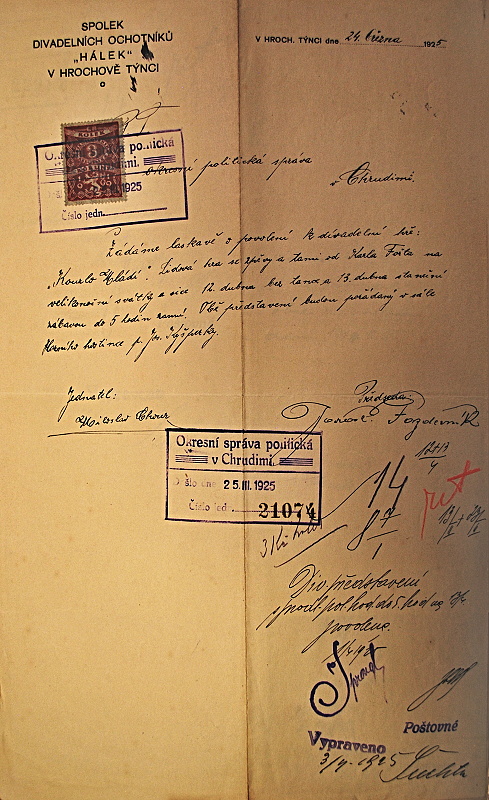 SPOLEK
DIVADELNÍCH OCHOTNÍKŮ
„HÁLEK“
V HROCHOVĚ TÝNCI
V HROCH. TÝNCI dne 24. března 1925
KOLEK
3
Okresní správa politická
1925
Číslo jedn.
okresní politická správa
v Chrudimi.
Žádáme laskavě o povolení k divadelní hře:
„Kouzlo Mládí“. Lidová hra se zpěvy a tanci od Karla Fořta na
velikonoční svátky a sice 12. dubna bez tance a 13. dubna s taneční
zábavou do 5 hodin ranní. Obě představení budou pořádány v sále
Horního hostince p. Jos.
Jednatel:
Předseda:
Miloslav
Pozdevník
Okresní správa politická
v Chrudimi.
Došlo dne 25.III.1925
Číslo jedn. 21074
3 Kč
14
8
Div. představení
povoleno.
Poštovné
Vypraveno
1925